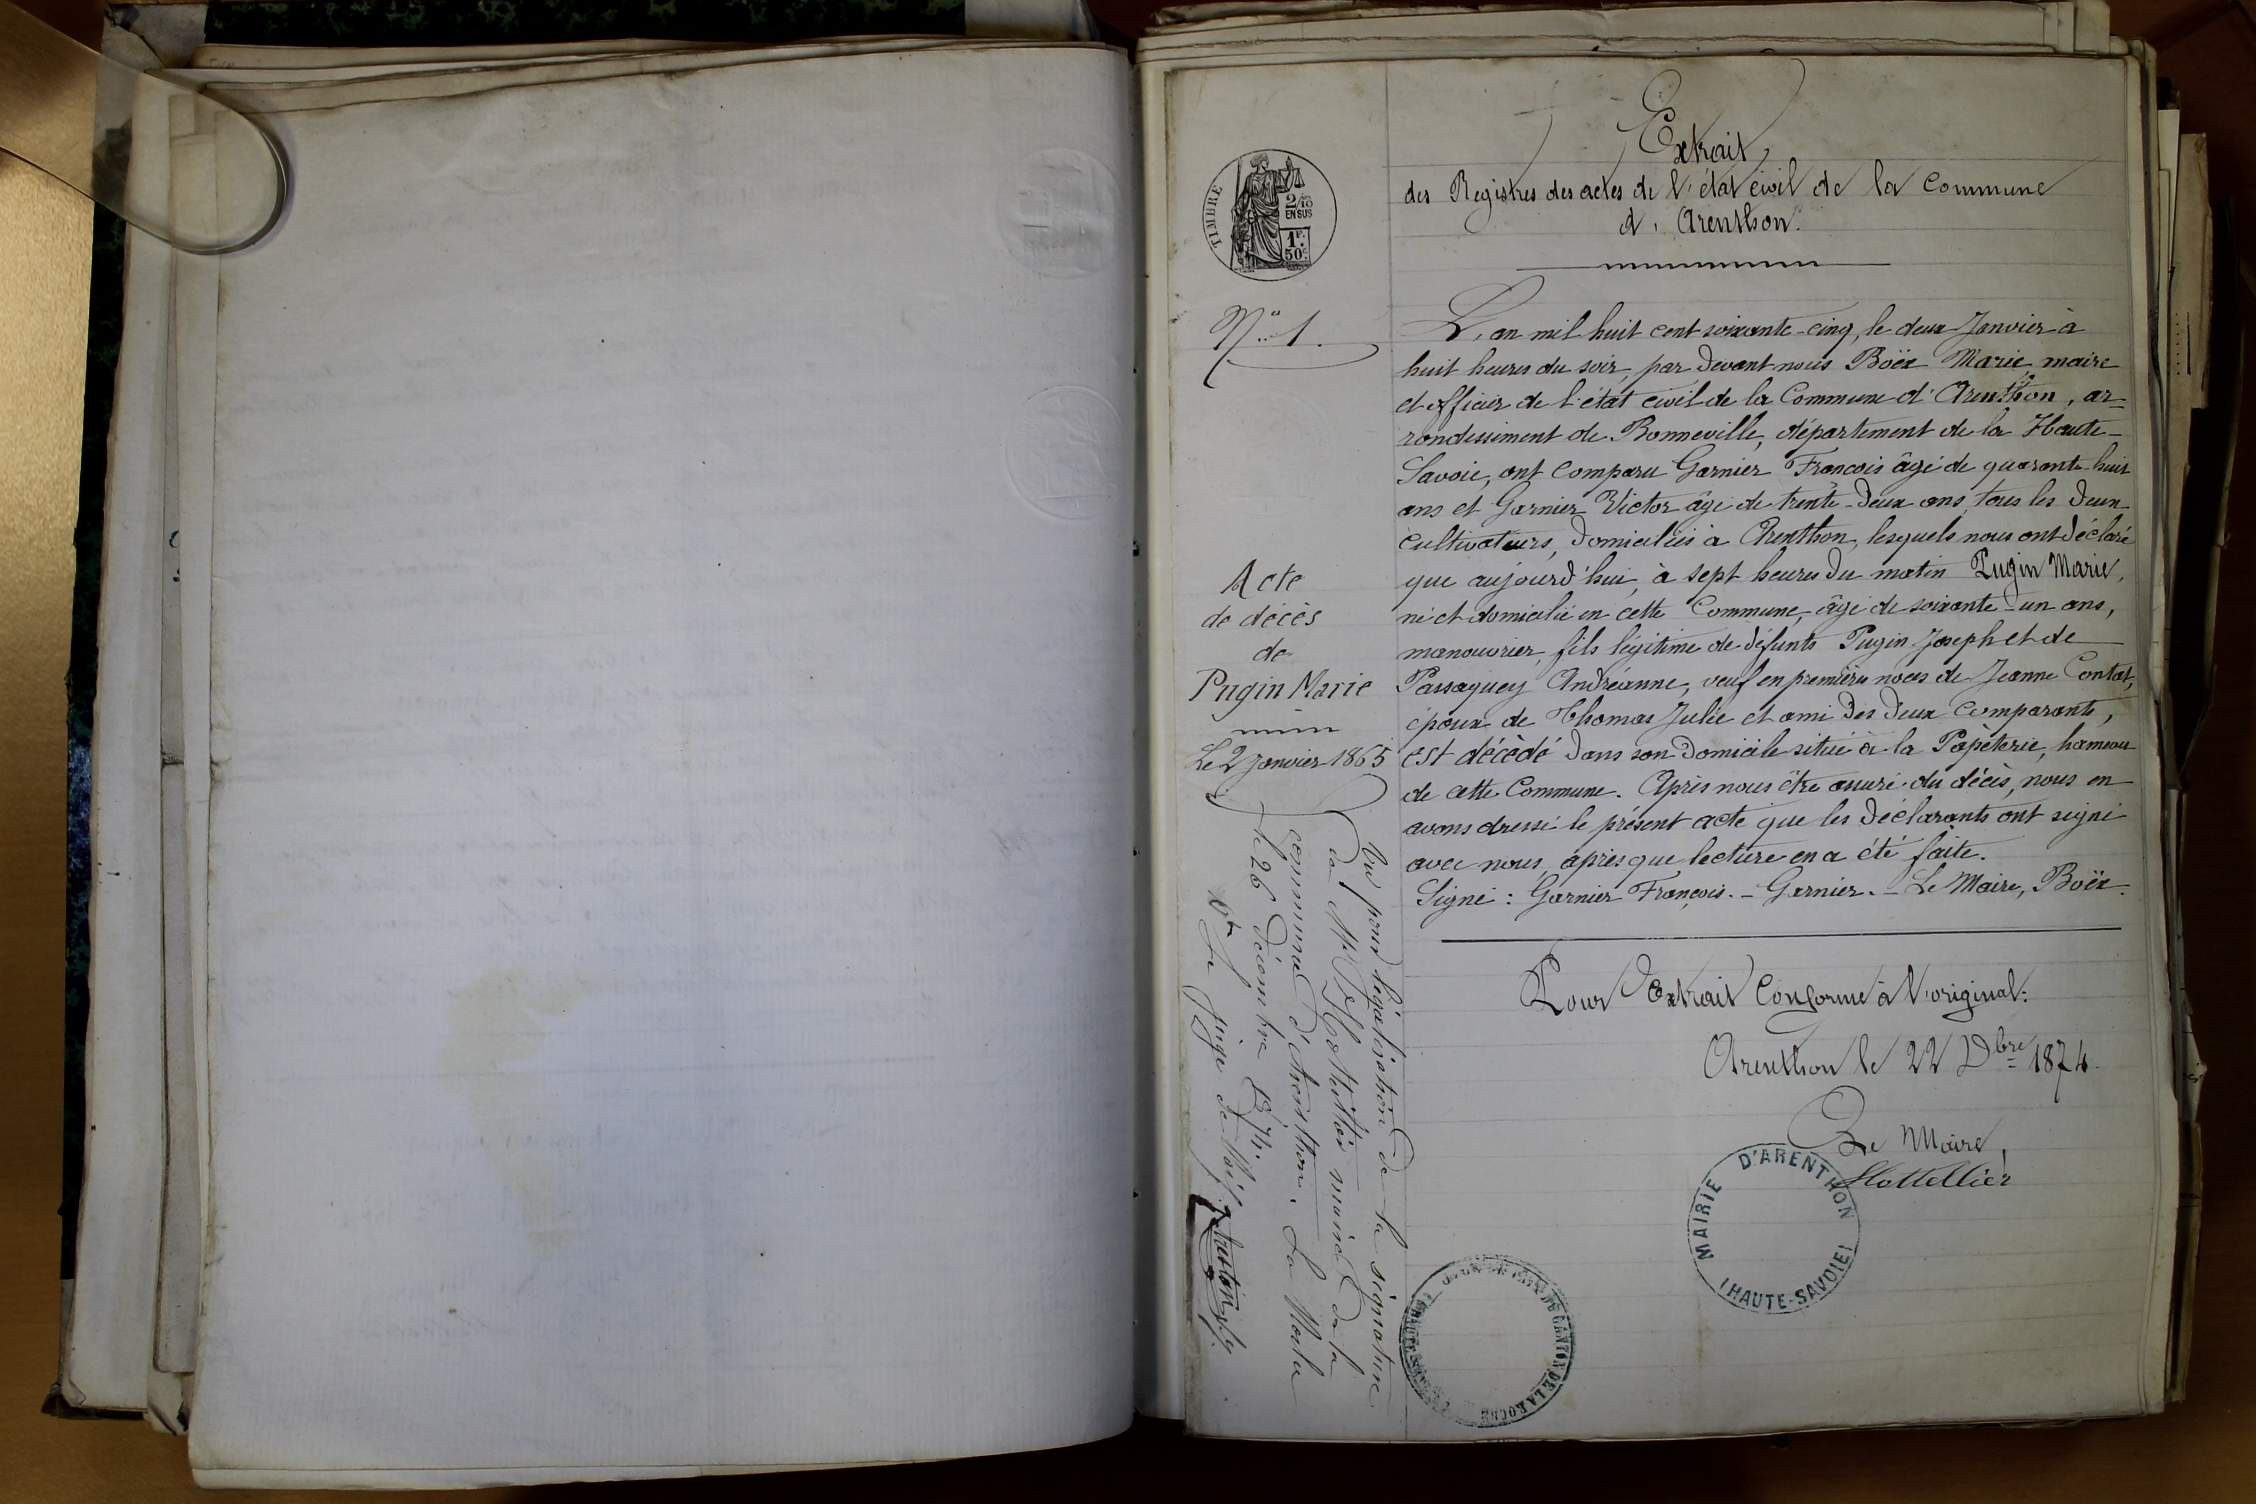 Extrait
des Registres des actes de l'état civil de la Commune
d'Arenthon.
TIMBRE
2/10
EN SUS
1F.
50c.
No 1.
L'an mil huit cent soixante-cinq, le deux Janvier à
huit heures du soir, par devant nous Boëx Marie, maire
et officier de l'état civil de la Commune d'Arenthon, ar-
rondissiment de Bonneville, département de la Haute-
Savoie, ont comparu Garnier François âgé de quarante-huit
ans et Garnier Victor âgé de trente-deux ans, tous les deux
cultivateurs, domiciliés à Arenthon, lesquels nous ont déclaré
que aujourd'hui, à sept heures du matin Pugin Marie,
né et domicilié en cette Commune, âgé de soixante-un ans,
manouvrier, fils légitime de défunts Pugin Joseph et de
Passaquey Andréanne, veuf en premières noces de Jeanne Contat,
époux de Thomas Julie et ami des deux comparants,
est décédé dans son domicile situé à la Papeterie, hameau
de cette Commune. Après nous être assuré du décès, nous en
avons dressé le présent acte que les déclarants ont signé
avec nous, après que lecture en a été faite.
Signé : Garnier François. - Garnier. - Le Maire, Boëx.
Acte
de décès
de
Pugin Marie
Le 2 Janvier 1865
Pour Extrait Conforme à l'original:
Arenthon le 22 Dbre 1874.
Le Maire,
Hottellier
MAIRIE D'ARENTHON
(HAUTE-SAVOIE)
Vu pour légalisation de la signature
de Mr Hottellier maire de la
commune d'Arenthon. La Roche
le 26 décembre 1874.
le juge de
CANTON DE LA ROCHE